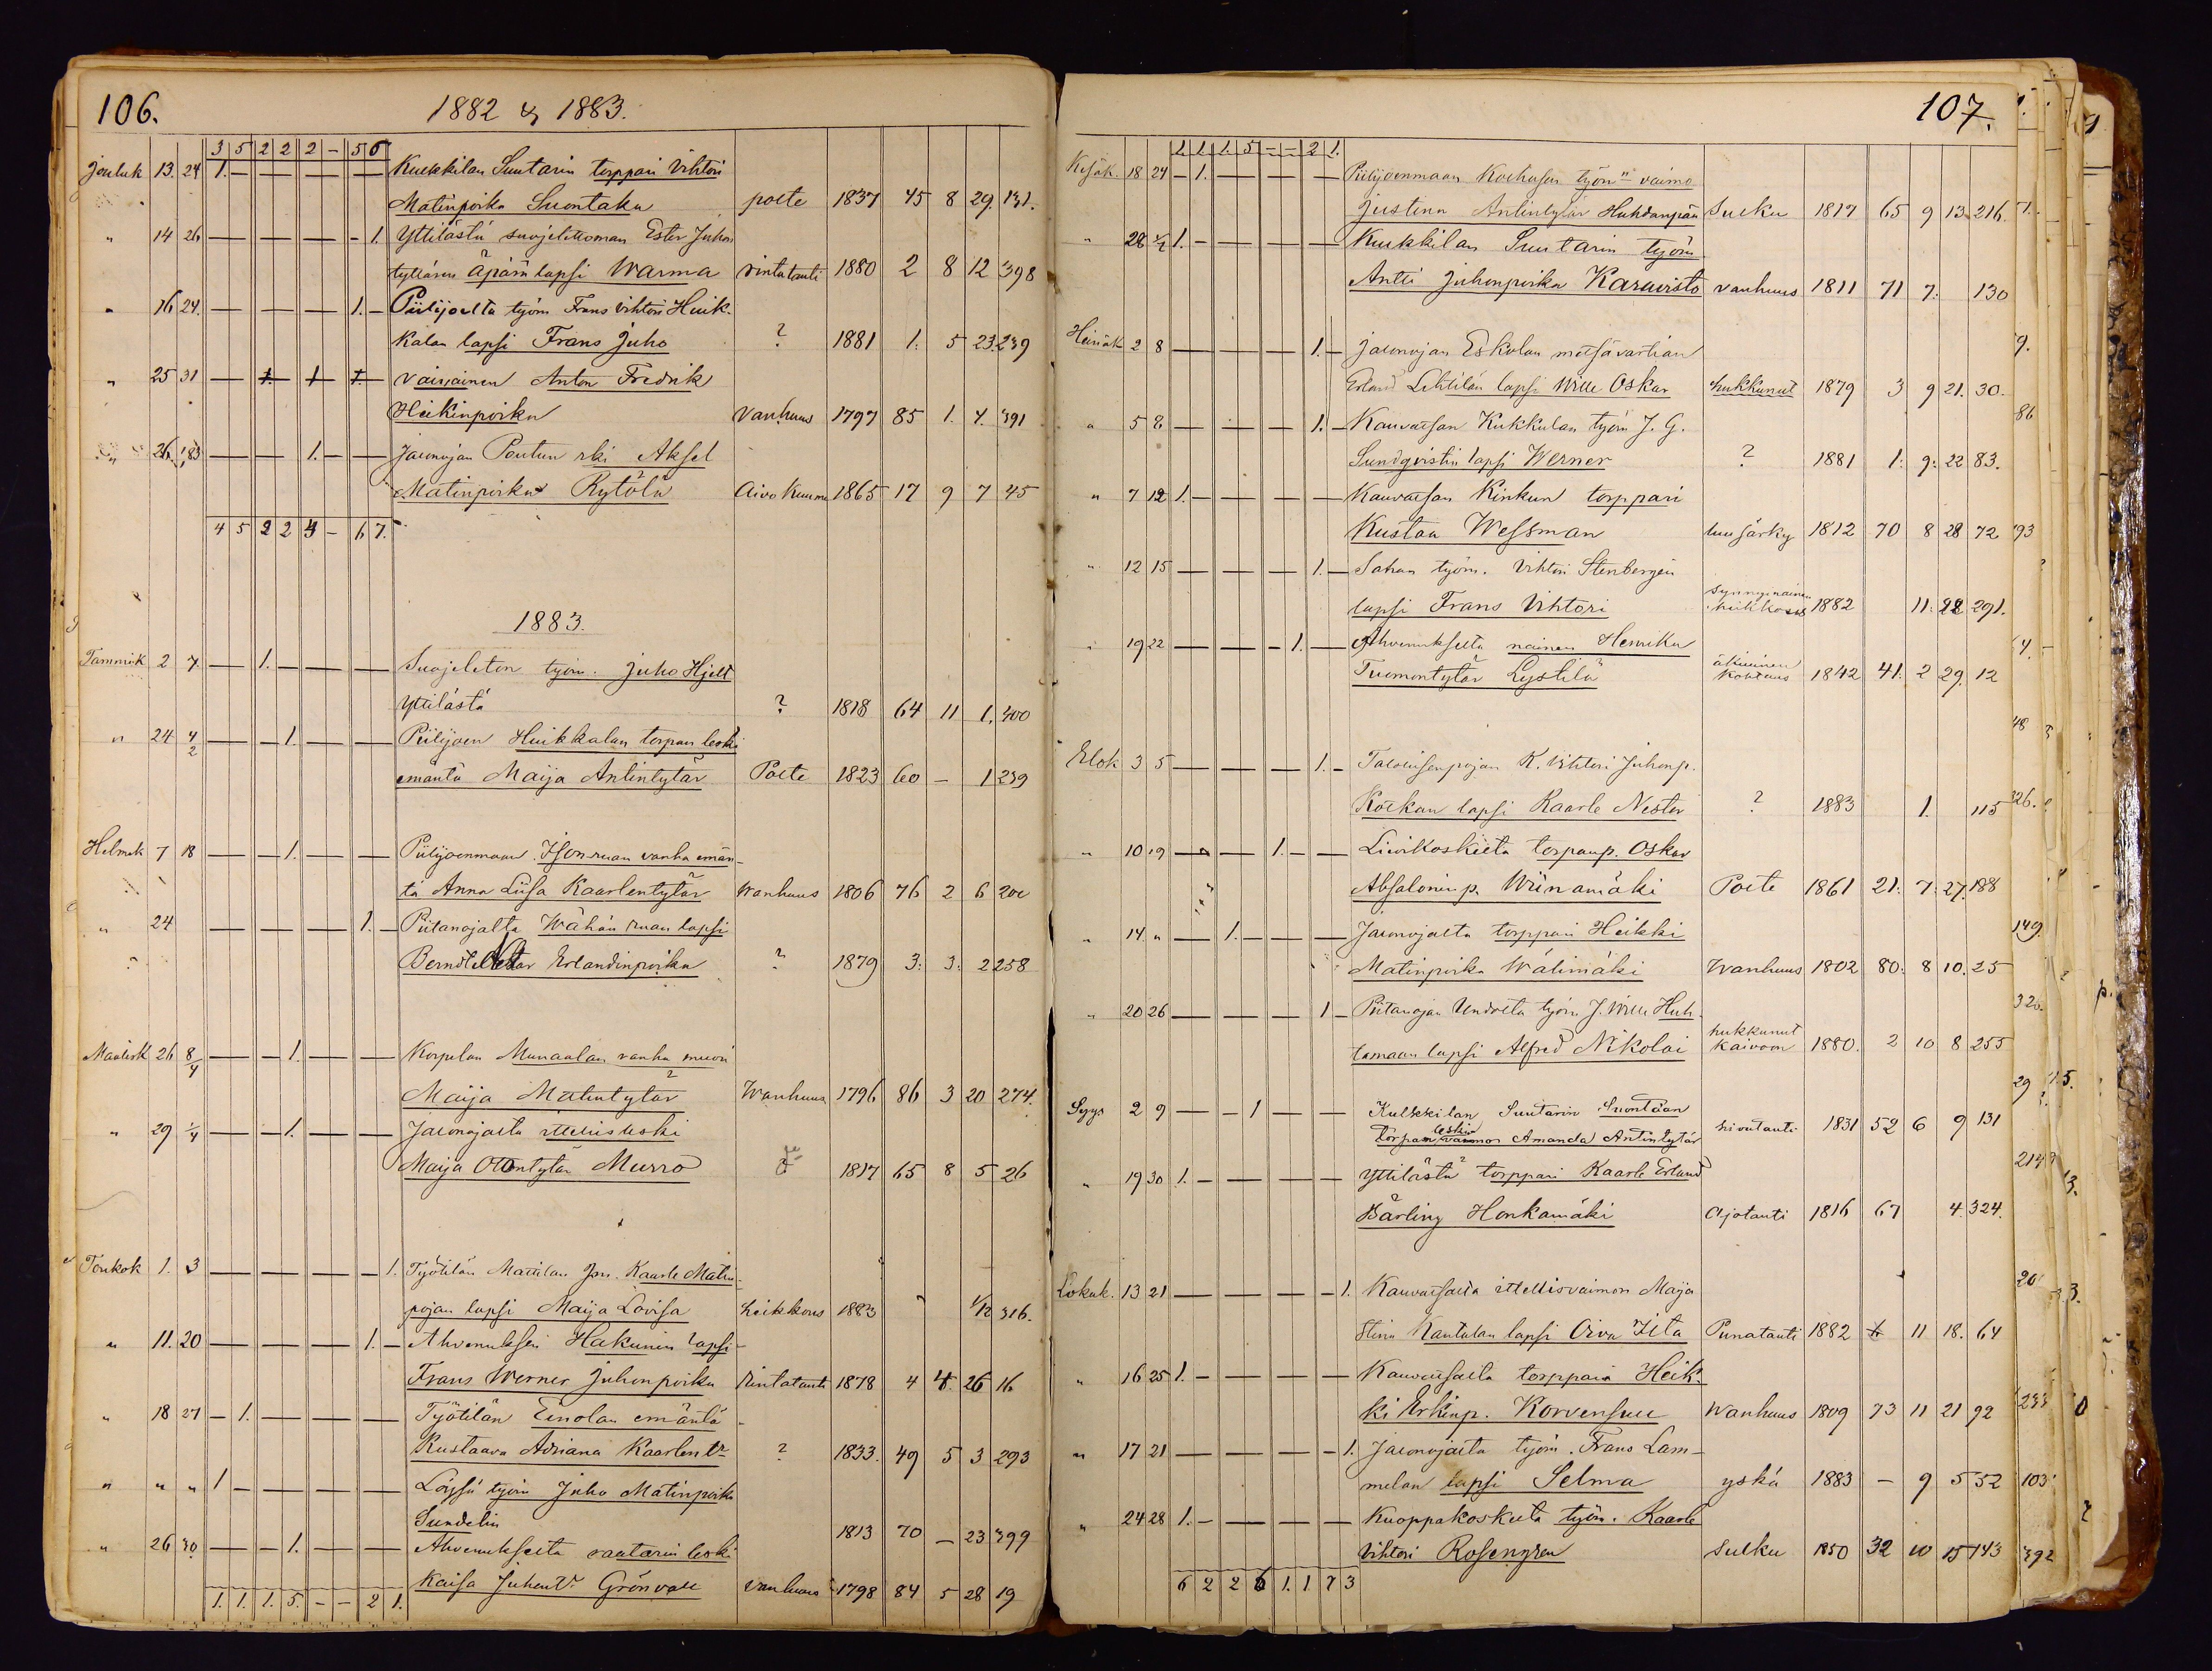 106.
1882 & 1883.
3 5 2 2 2 - 5 6
Jouluk 13. 24 1. — — — — Kukkilan Suutarin torppari Vihtori
Matinpoika Suontaka polte 1837 45 8 29. 131.
" 14 26 — — — - 1. Yttilästä suojelittoman Ester Juhon
tyttären äpärä lapsi Warma rintatauti 1880 2 8 12 398
" 16 24. — — — — 1. - Piilijoelta työm Frans Vihtori Heik-
kalan lapsi Frans Juho ? 1881 1. 5 23. 239
" 25 31 — 1. 1 1. Vaivainen Anton Fredrik
Heikinpoika Vanhuus 1797 85 1. 7. 391
" 26. 1/1 83 — — 1. — — Jaronojan Poutun rki Aksel
Matinpoika Rytölä Aivo kuume 1865 17 9 7 45
4 5 2 2 3 - 6 7.
1883.
Tammik 2 7 — 1. — — — Suojeleton työm. Juho Hjelt
Yttilästä ? 1818 64 11 1. 400
" 24 4/2 — — 1. — — Piilijoen Heikkalan torpan leski
emäntä Maija Antintytär Polte 1823 60 — 1 239
Helmik 7 18 — — 1. — — Piilijoenmaan Ison-ruan vanha emän-
tä Anna Liisa Kaarlentytär Wanhuus 1806 76 2 6 200
" 24 — — — — 1. — Piitanojalta Wähän ruan lapsi
Erlandinpoika ? 1879 3: 3: 2 258
Maalisk 26 8/4 — — 1. — — Korpelan Munaalan vanha muori
Maija Matintytär Wanhuus 1796 86 3 20 274.
" 29 1/4 — — 1. — — Jaronojalta ittellis leski
Maija Otontytär Murro 1817 65 8 5 26
Toukok 1. 3 — — — — 1. Työtilän Mattilan Kaarle Matin-
pojan lapsi Maija Lovisa heikkous 1883 1/12 316.
" 11. 20 — — — — 1. — Ahvenuksen Hakunin lapsi
Frans Werner Juhonpoika Rintatauti 1878 4 4. 26 16
" 18 27 — 1. — — — — Työtilän Einolan emäntä
Kustaava Adriana Kaarlent:r ? 1833. 49 5 3 293
" " " 1 — — — — Löysä työm Juho Matinpoika
Sundelin 1813 70 — 23 399
" 26 30. — — 1. — — Ahvenukselta vaatarin leski
Kaisa Juhont:r Grönvall vanhuus 1798 84 5 28 19
1. 1. 1. 5. - - 2 1.
107.
1. 1. 1. 5 - - 2 1.
Kesäk. 18 24 — 1. — — — — Piilijoenmaan työm:n vaimo
Justina Antintytär Huhdanpää Sulku 1817 65 9 13 216.
" 28 1/7 1. — — — — Kukkilan Suutarin työm
Antti Juhonpoika Karavisto vanhuus 1811 71 7. 130
Heinäk 2 8 — — — — 1. — Jaronojan Eskolan metsävartian
Erland Lehtilän lapsi Wille Oskar hukkunut 1879 3 9 21. 30.
" 5 8 — — — — 1. — Kauvatsan Kukkulan työm J. G.
Sundqvistin lapsi Werner ? 1881 1. 9: 22 83.
" 7 12 1. — — — — Kauvatsan Kinkun torppari
Kustaa Wessman luusärky 1812 70 8 28 72
" 12 15 — — — — 1. — Sahan työm. Vihtori Stenbergin
lapsi Frans Vihtori synnynäinen heikkous 1882 11. 22 291.
" 19 22 — — — 1. — Ahvenukselta nainen Henrika
Tuomontytär Lystilä äkiuinen kohtaus 1842 41. 2 29. 12
Elok 3 5 — — — — 1. — Talollisenpojan K. Vihtori Juhonp.
Kolkan lapsi Kaarle Nestor ? 1883 1. 115
" 10 19 — — 1. — — Livikoskelta torpanp. Oskar
Absaloninp. Wiinamäki Polte 1861 21: 7: 27. 188
" 14 " — 1. — — — Jaronojalta torppari Heikki
Matinpoika Wälimäki Wanhuus 1802 80. 8 10. 25
" 20 26 — — — — 1 — Piitanojan Undolta työm J. Wille Huh-
tamaan lapsi Alfred Nikolai hukkunut kaivoon 1880. 2 10 8 255
Syys 2 9 — — 1 — — Kulkkilan Suutarin Suontaan
torpan leski vaimo Amanda Antintytär hivutauti 1831 52 6 9 131
" 19 30 1. — — — — Yttilästä torppari Kaarle Erland
Bärling Honkamäki Ajotauti 1816 67 4. 324.
Lokak. 13 21 — — — — 1. Kauvatsalta ittellisvaimon Maija
Stina Rantalan lapsi Oiva Iita Punatauti 1882 11 18. 64
" 16 25 1. — — — — Kauvatsalta torppari Heik-
ki Erkinp. Korvensuu Wanhuus 1809 73 11 21 92
" 17 21 — — — — 1. Jaronojalta työm. Frans Lam-
melan lapsi Selma yskä 1883 — 9 5 52
" 24 28 1. — — — — Kuoppakoskelta työm. Kaarle
Vihtori Rosengren Sulku 1850 32 10 15 143
6 2 2 6 1. 1 7 3